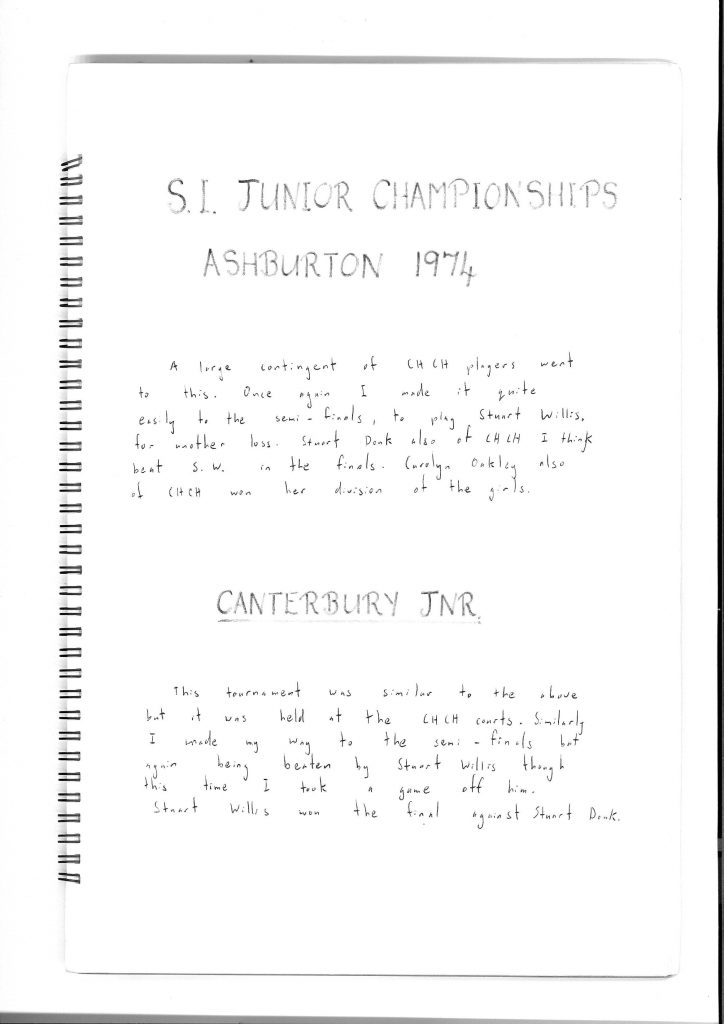 S.I. JUNIOR CHAMPIONSHIPS
ASHBURTON 1974
A large contingent of CHCH players went
to this. Once again I made it quite
easily to the semi-finals, to play Stuart Willis,
for another loss. Stuart Donk also of CHCH I think
beat S.W. in the finals. Carolyn Oakley also
of CHCH won her division of the girls.
CANTERBURY JNR.
This tournament was similar to the above
but it was held at the CHCH courts. Similarly
I made my way to the semi-finals but
again being beaten by Stuart Willis though
this time I took a game off him.
Stuart Willis won the final against Stuart Donk.